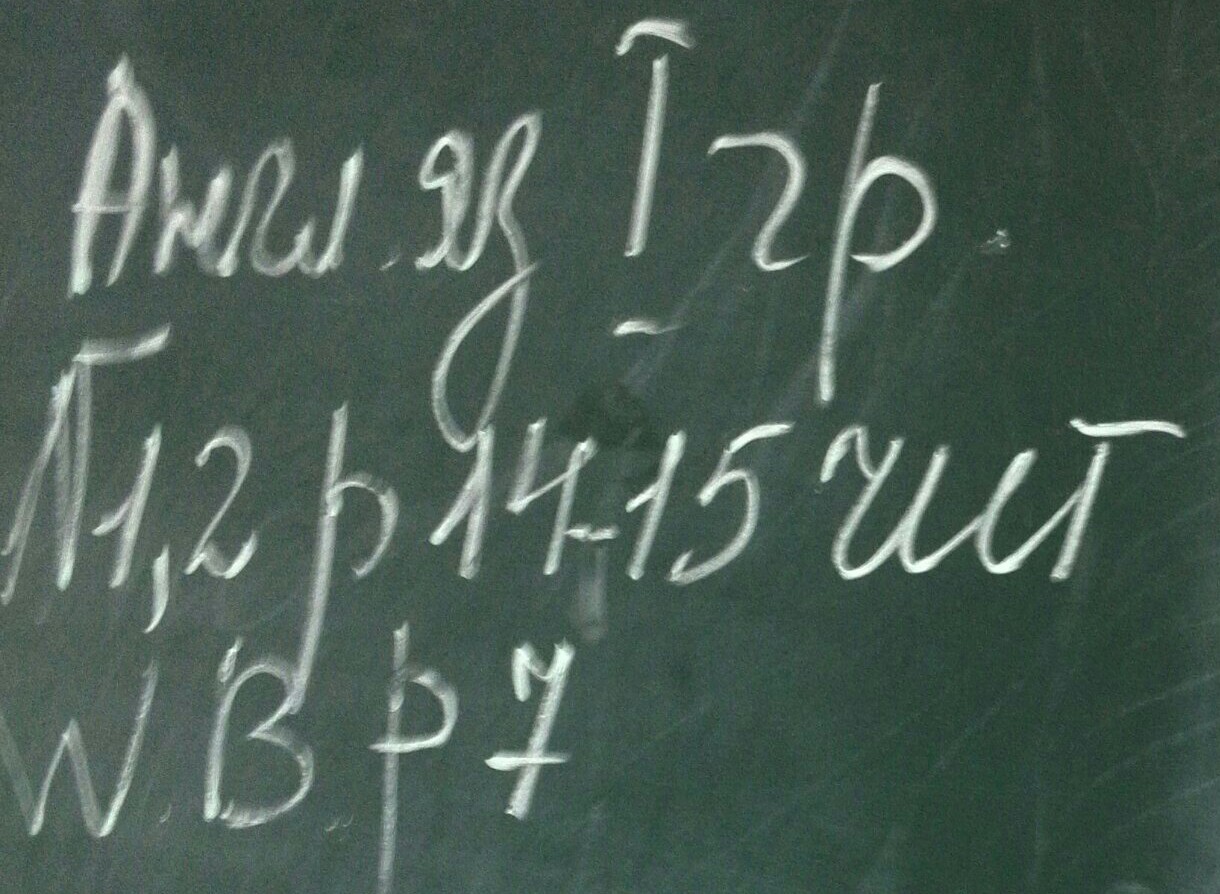 Англ. яз I гр.
N1,2 p 14-15 чит
W.B. p 7